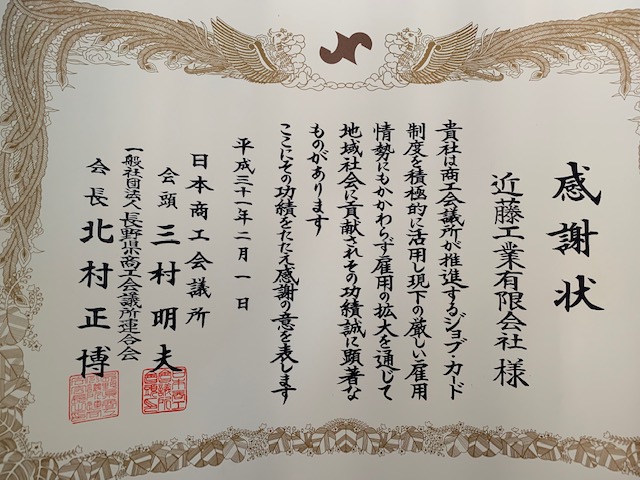 感謝状
近藤工業有限会社 様
貴社は商工会議所が推進するジョブ・カード
制度を積極的に活用し現下の厳しい雇用
情勢にもかかわらず雇用の拡大を通じて
地域社会に貢献されその功績誠に顕著な
ものがあります
ここにその功績をたたえ感謝の意を表します
平成三十一年二月一日
日本商工会議所
会頭 三村明夫
一般社団法人長野県商工会議所連合会
会長 北村正博